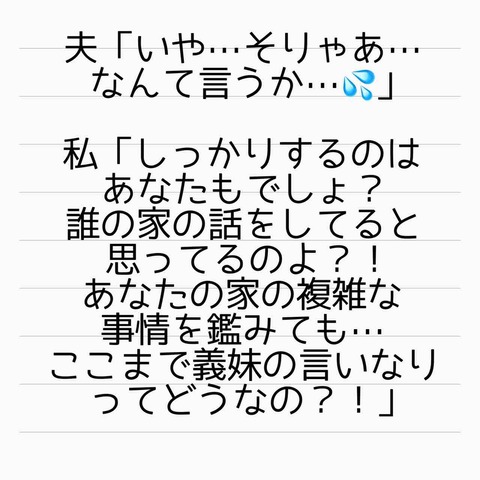 夫「いや…そりゃあ…
なんて言うか…💦」
私「しっかりするのは
あなたもでしょ？
誰の家の話をしてると
思ってるのよ？！
あなたの家の複雑な
事情を鑑みても…
ここまで義妹の言いなり
ってどうなの？！」